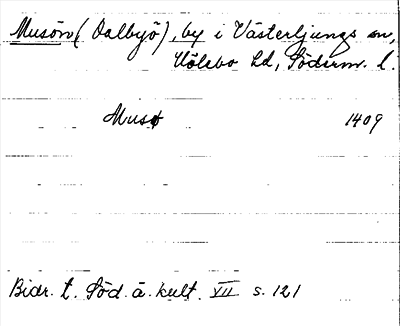 Musön (Dalbyö), by i Västerljungs sn,
Hölebo hd, Söderm. l.
Musø 1409
Bidr. t. Söd. ä. kult. VII s. 121